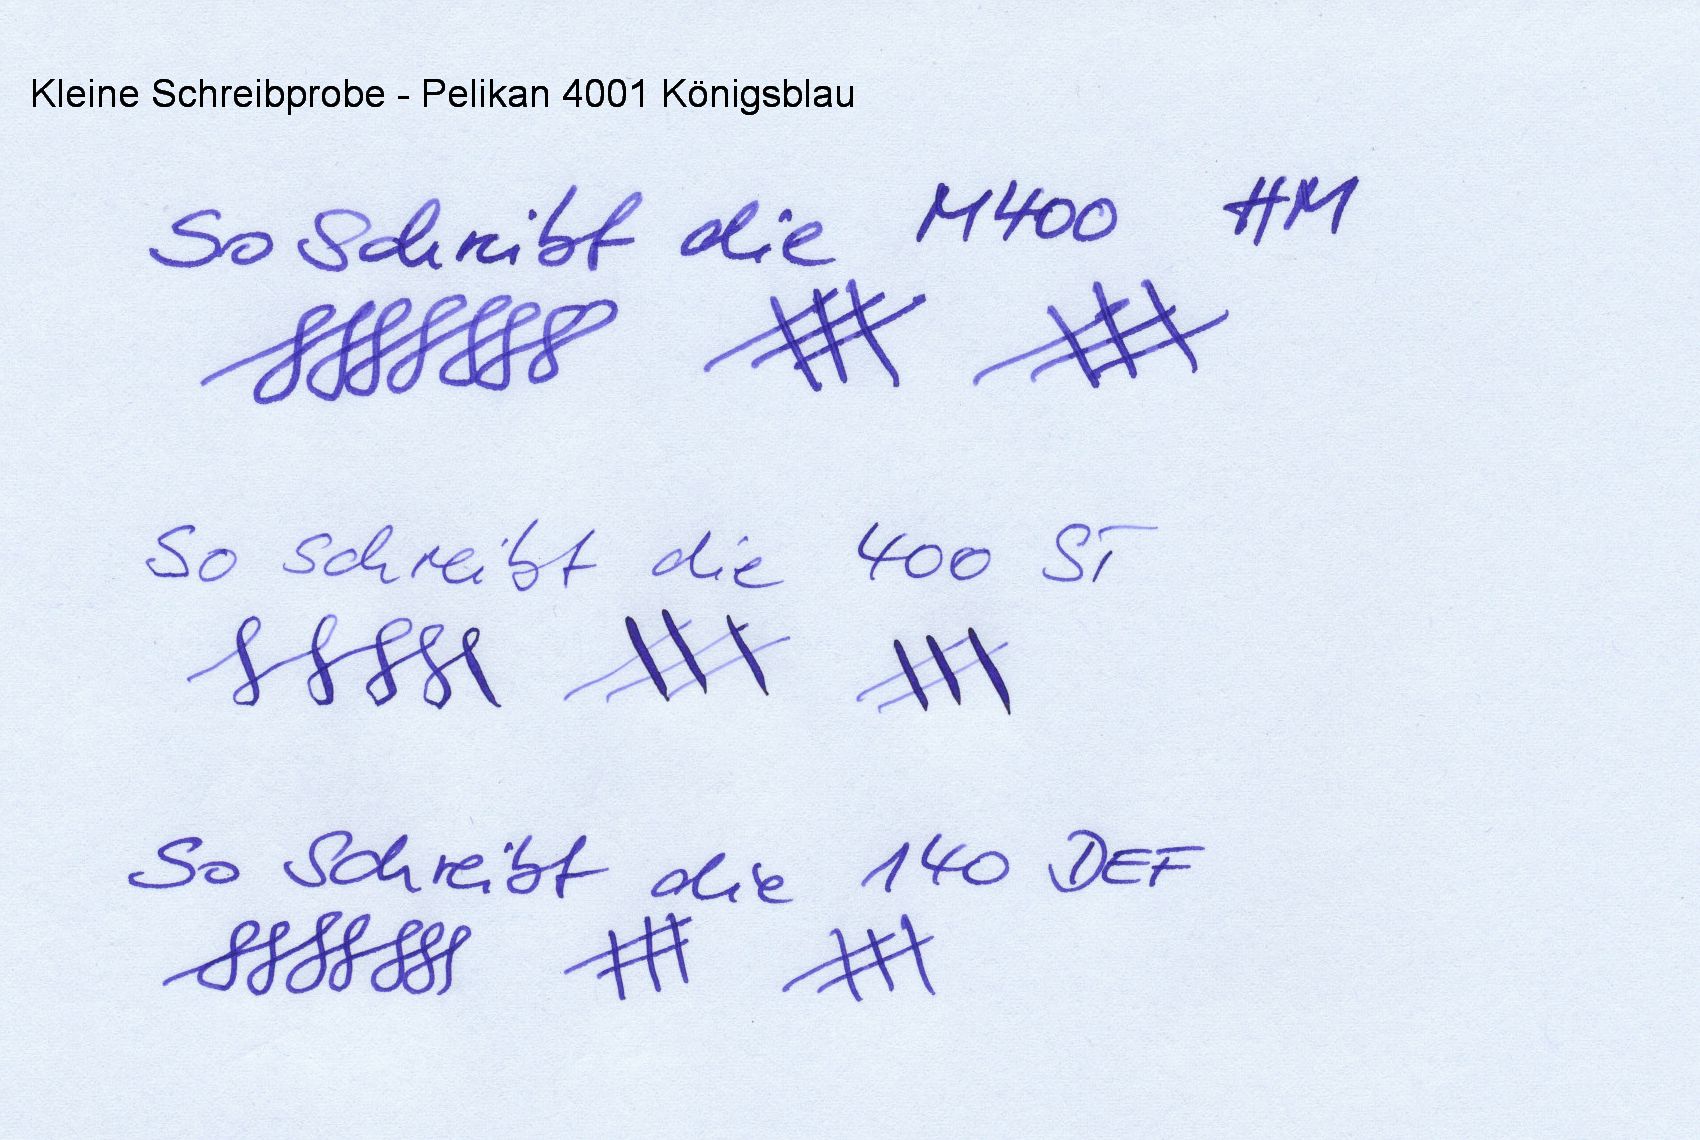 Kleine Schreibprobe - Pelikan 4001 Königsblau
So schreibt die M400 HM
So schreibt die 400 ST
So schreibt die 140 DEF